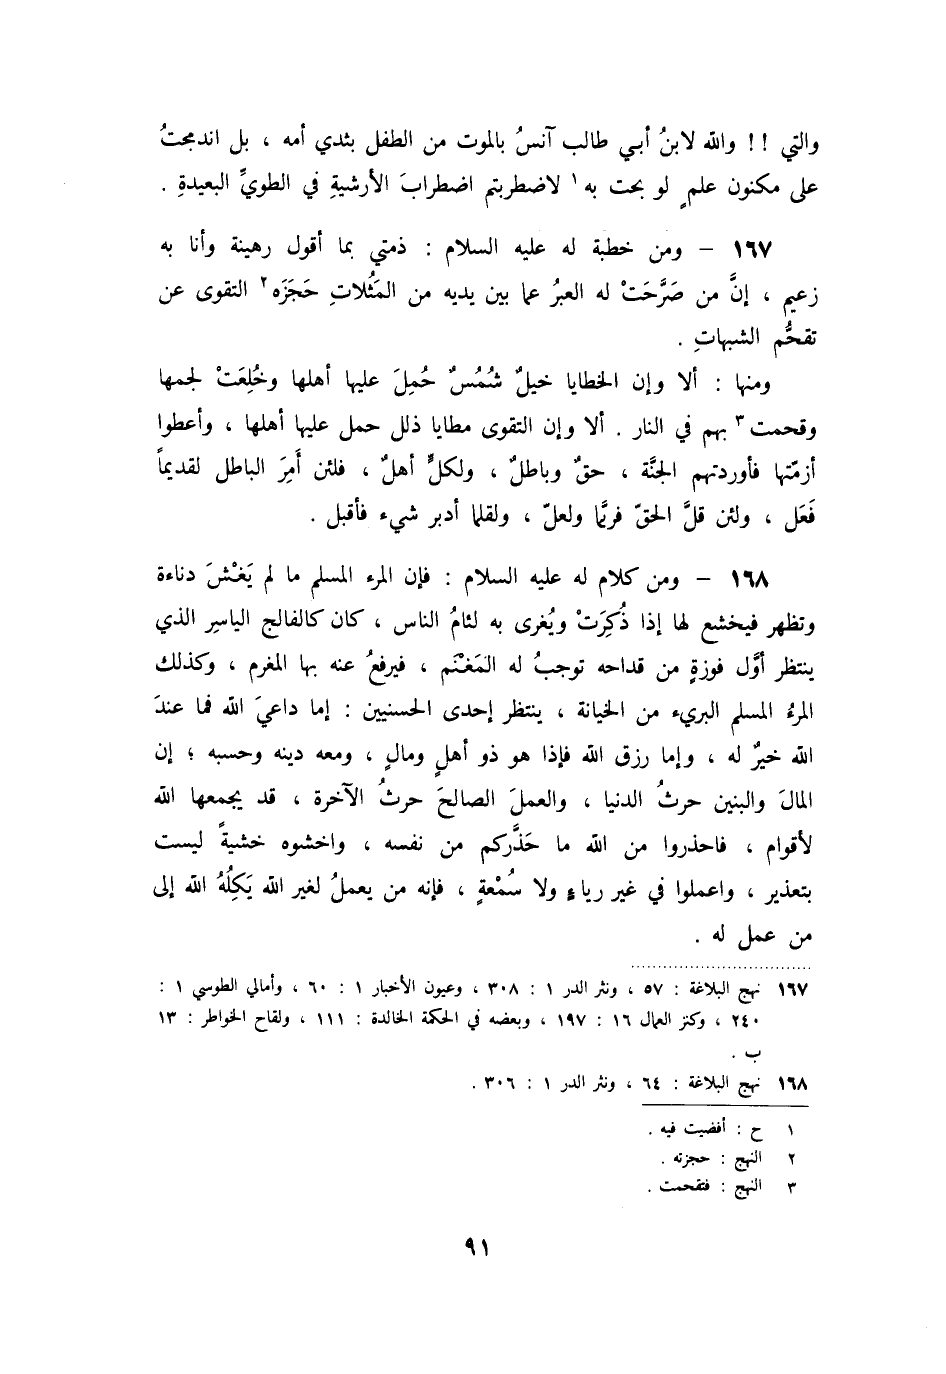 والتي !! والله لابنُ أبي طالب آنسُ بالموت من الطفل بثدي أمه ، بل اندمجتُ
على مكنون علمٍ لو بحت به ١ لاضطربتم اضطرابَ الأرشيةِ في الطويِّ البعيدةِ .
١٦٧ – ومن خطبة له عليه السلام : ذمتي بما أقول رهينة وأنا به
زعيم ، إنَّ من صَرَّحَتْ له العبرُ عما بين يديه من المَثُلاتِ حَجَزَه ٢ التقوى عن
تقحُّم الشبهاتِ .
ومنها : ألا وإن الخطايا خيلٌ شُمُسٌ حُمِلَ عليها أهلها وخُلِعَتْ لجمها
وقحمت ٣ بهم في النار . ألا وإن التقوى مطايا ذلل حمل عليها أهلها ، وأعطوا
أزمّتها فأوردتهم الجنَّة ، حقٌ وباطلٌ ، ولكلٍّ أهلٌ ، فلئن أَمِرَ الباطل لقديماً
فَعَل ، ولئن قلَّ الحقّ فربَّما ولعلّ ، ولقلما أدبر شيء فأقبل .
١٦٨ – ومن كلام له عليه السلام : فإن المرء المسلم ما لم يَغْشَ دناءة
وتظهر فيخشع لها إذا ذُكِرَتْ ويُغرى به لئامُ الناس ، كان كالفالج الياسِر الذي
ينتظر أوَّل فوزةٍ من قداحه توجبُ له المَغْنَم ، فيرفعُ عنه بها المغرم ، وكذلك
المرءُ المسلم البريء من الخيانة ، ينتظر إحدى الحسنيين : إما داعيَ الله فما عندَ
الله خيرٌ له ، وإما رزق الله فإذا هو ذو أهلٍ ومالٍ ، ومعه دينه وحسبه ؛ إن
المالَ والبنين حرثُ الدنيا ، والعملَ الصالحَ حرثُ الآخرة ، قد يجمعها الله
لأقوام ، فاحذروا من الله ما حَذَّركم من نفسه ، واخشوه خشيةً ليست
بتعذير ، واعملوا في غير رياءٍ ولا سُمْعةٍ ، فإنه من يعملُ لغير الله يَكِلُهُ الله إلى
من عمل له .
١٦٧ نهج البلاغة : ٥٧ ، ونثر الدر ١ : ٣٠٨ ، وعيون الأخبار ١ : ٦٠ ، وأمالي الطوسي ١ :
٢٤٠ ، وكنز العمال ١٦ : ١٩٧ ، وبعضه في الحكمة الخالدة : ١١١ ، ولقاح الخواطر : ١٣
ب .
١٦٨ نهج البلاغة : ٦٤ ، ونثر الدر ١ : ٣٠٦ .
١ ح : أفضيت فيه .
٢ النهج : حجزته .
٣ النهج : فتقحمت .
٩١